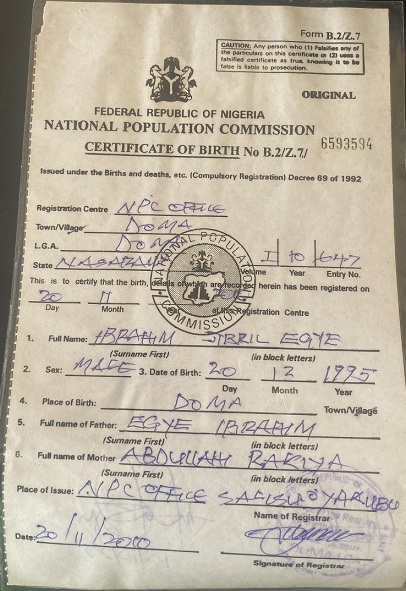 Form B.2/Z.7
CAUTION: Any person who (1) Falsifies any of
the particulars on this certificate or (2) uses a
falsified certificate as true, knowing it to be
false is liable to prosecution.
ORIGINAL
FEDERAL REPUBLIC OF NIGERIA
NATIONAL POPULATION COMMISSION
CERTIFICATE OF BIRTH No B.2/Z.7/ 6593594
Issued under the Births and deaths, etc. (Compulsory Registration) Decree 69 of 1992
Registration Centre NPC OFFICE
Town/Village DOMA
L.G.A. DOMA
State
NATIONAL POPULATION COMMISSION
I 10 647
Volume Year Entry No.
This is to certify that the birth, details of which are recorded herein has been registered on
20 11
Day Month at this Registration Centre
1. Full Name: IBRAHIM JIBRIL EGYE
(Surname First) (in block letters)
2. Sex: MALE 3. Date of Birth: 20 12 1995
Day Month Year
4. Place of Birth: DOMA Town/Village
5. Full name of Father: EGYE IBRAHIM
(Surname First) (in block letters)
6. Full name of Mother ABDULLAHI RAKIYA
(Surname First) (in block letters)
Place of Issue: NPC OFFICE
Name of Registrar
Date: 20/11/2010
Signature of Registrar